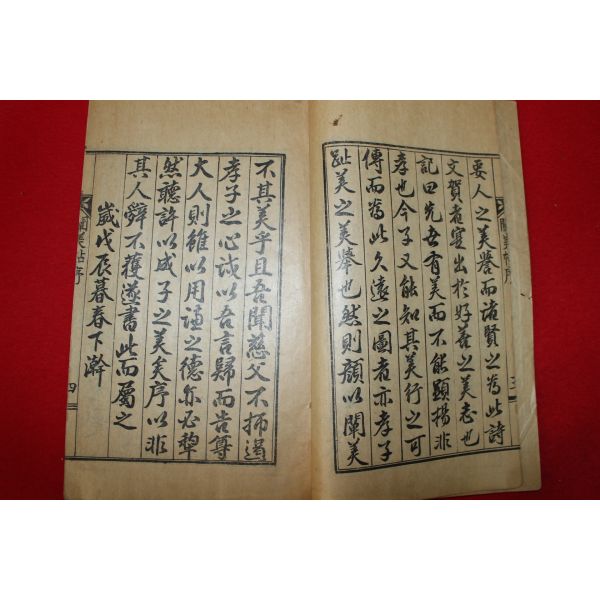 要人之美譽而諸賢之爲此詩
文賀者寔出於好善之美志也
記曰先世有美而不能顯揚非
孝也今子又能知其美行之可
傳而爲此久遠之圖者亦孝子
趾美之美擧也然則顏以闡美
闡美帖序 三
不其美乎且吾聞慈父不揜遏
孝子之心試以吾言歸而告尊
大人則雖以用謙之德亦必犂
然聽許以成子之美矣序以非
其人辭不獲遂書此而屬之
歲戊辰暮春下澣
闡美帖序 四